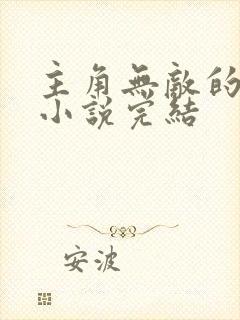 主角無敵的
小說完結
安波